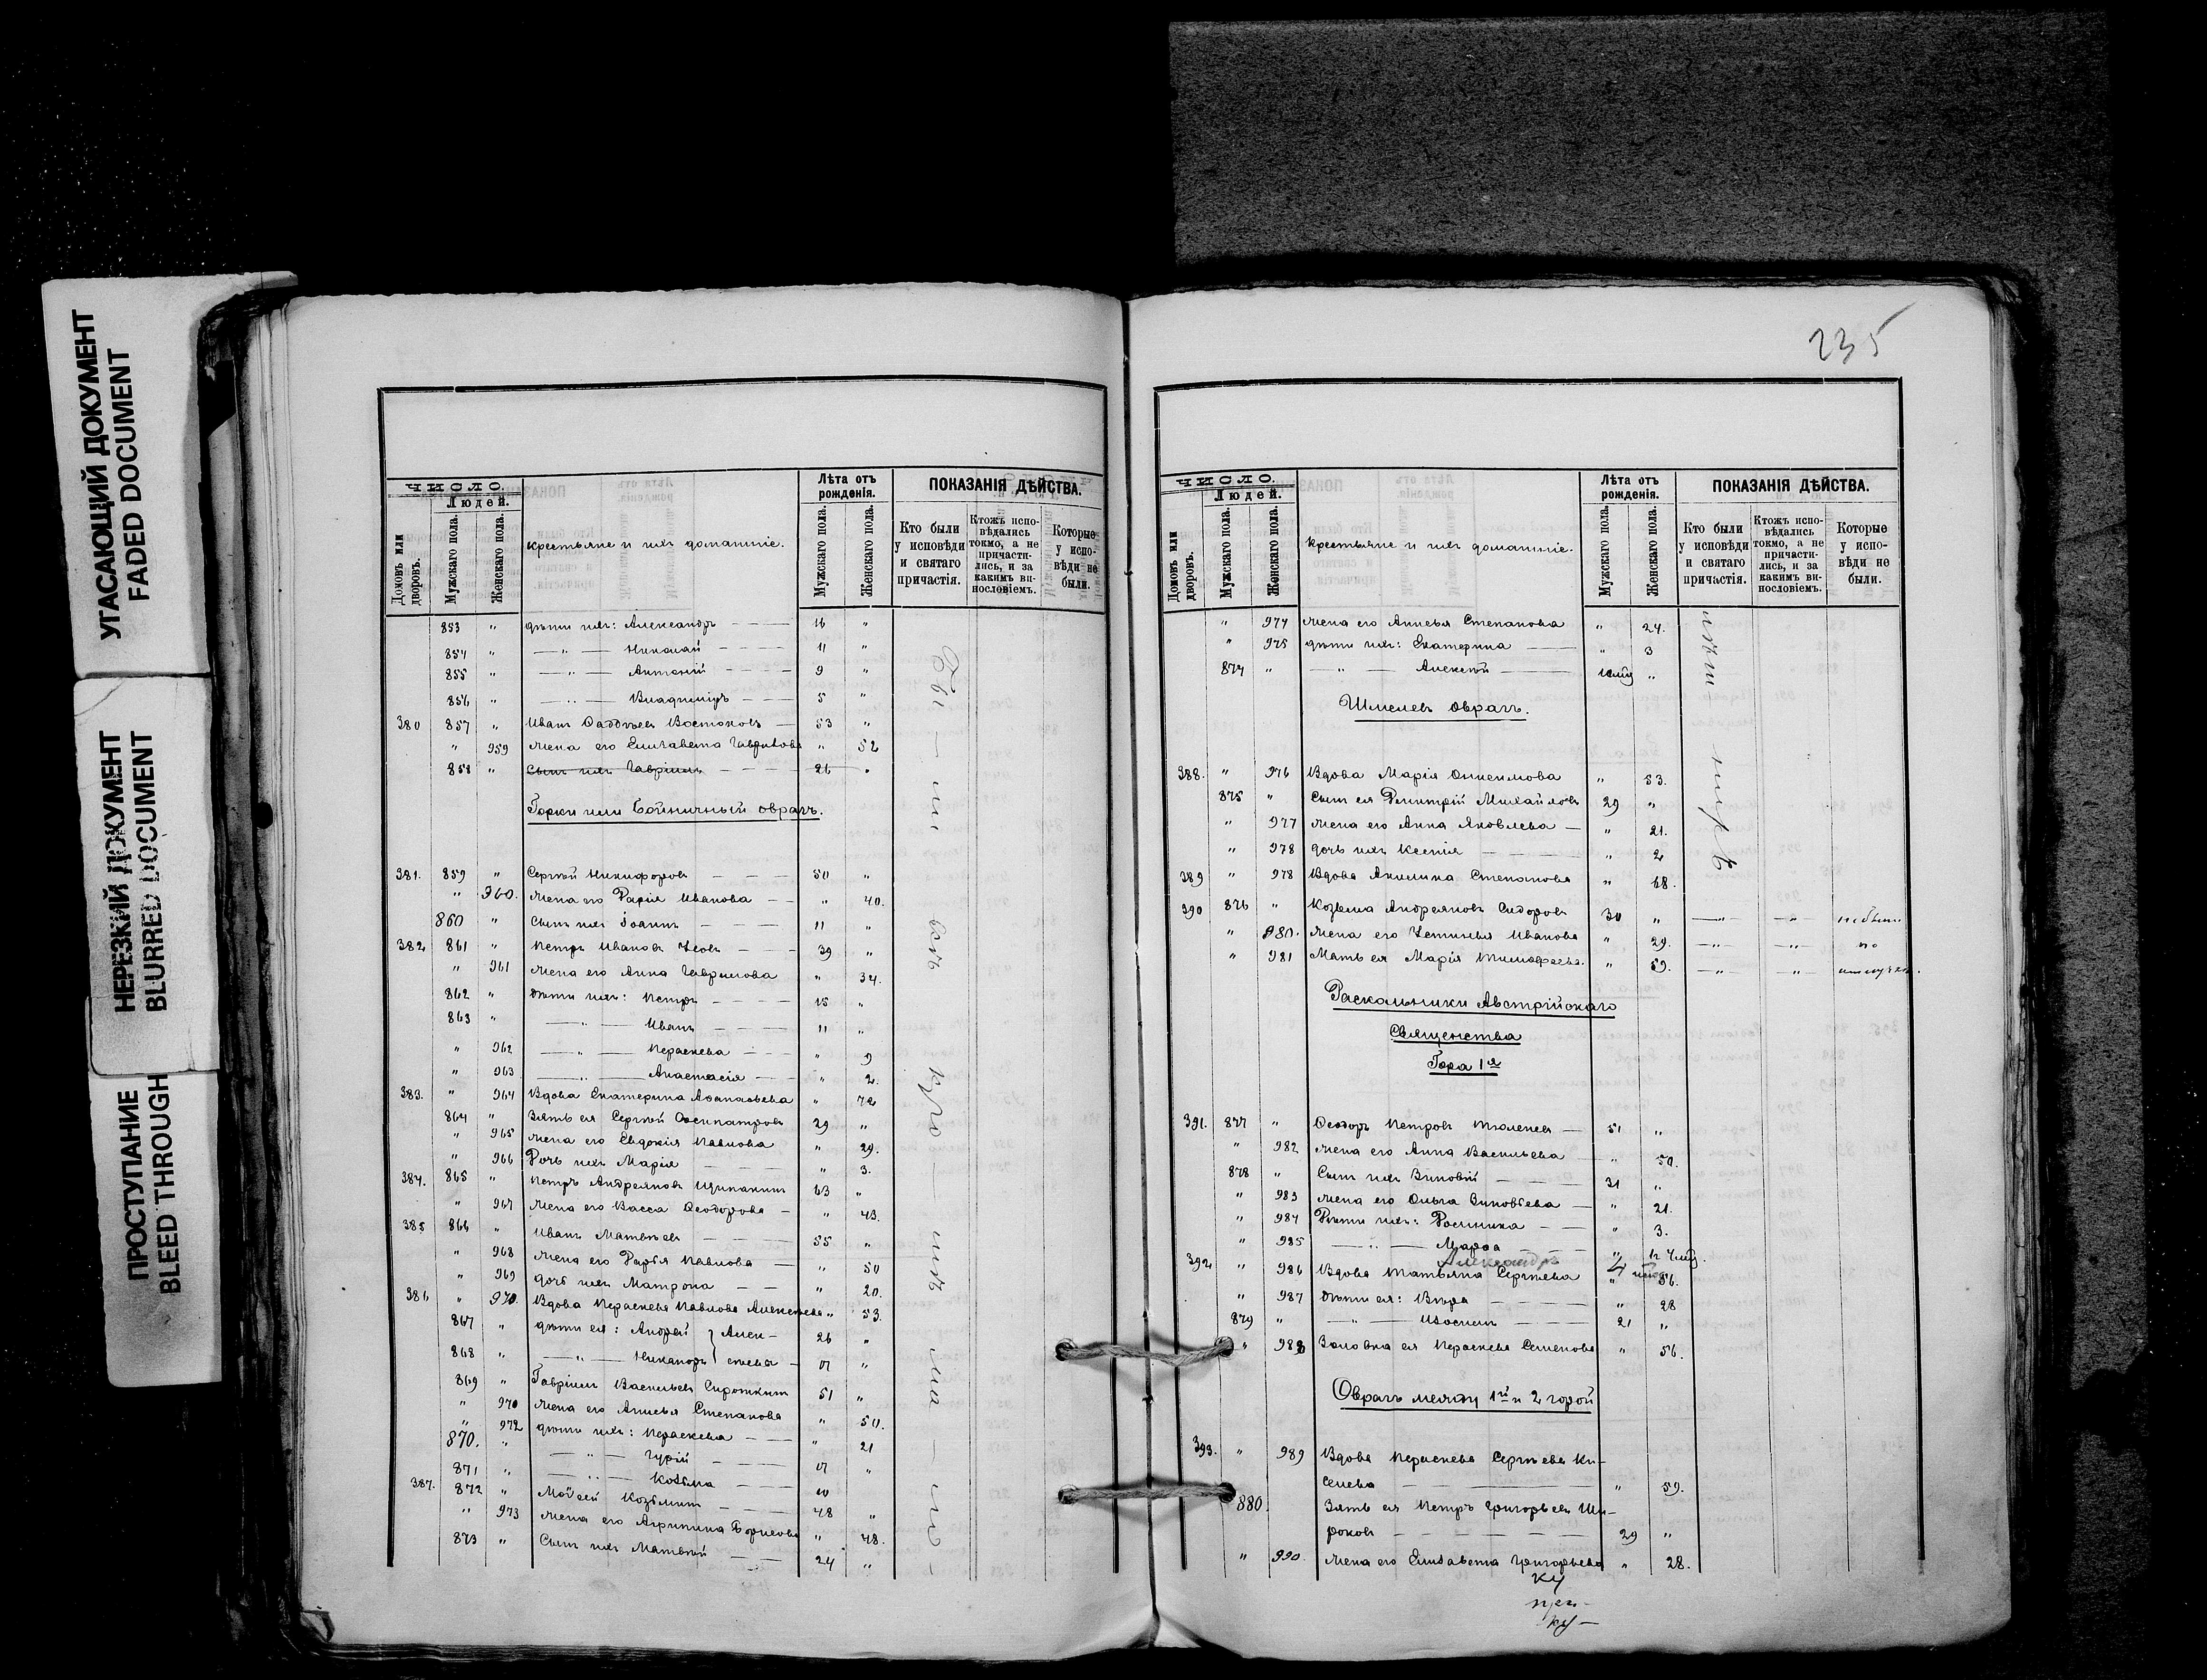 УГАСАЮЩИЙ ДОКУМЕНТ
FADED DOCUMENT
НЕРЕЗКИЙ ДОКУМЕНТ
BLURRED DOCUMENT
ПРОСТУПАНИЕ
BLEED THROUGH
ЧИСЛО.
Людей.
Домовъ или дворовъ.
Мужскаго пола.
Женскаго пола.
крестьяне и ихъ домашніе.
Лѣта отъ рожденія.
Мужскаго пола.
Женскаго пола.
ПОКАЗАНІЯ ДѢЙСТВА.
Кто были у исповѣди и святаго причастія.
Ктожъ исповѣдались токмо, а не причастились, и за какимъ винословіемъ.
Которые у исповѣди не были.
853 " дѣти ихъ: Александръ — 16 "
854 " — " — Николай — 11 "
855 " — " — Антоній — 9 "
856 " — " — Владиміръ — 5 "
380 857 " Иванъ Фаддѣевъ Востоковъ — 53 "
" 959 Жена его Елизавета Гаврилова " 52
858 " Сынъ ихъ Гавріилъ — 26 "
Горки или Бойничный оврагъ.
381. 859 " Сергѣй Никифоровъ — 50 "
" 960. Жена его Дарія Иванова — " 40.
860 " Сынъ ихъ Іоаннъ — 11 "
382 861 " Петръ Ивановъ — 39 "
" 961 Жена его Анна Гаврилова " 34.
862 " Дѣти ихъ: Петръ — 15 "
863 " — " — Иванъ — 11 "
" 962 — " — Параскева — " 9
" 963 — " — Анастасія — " 2.
383. " 964 Вдова Екатерина Аѳанасьева " 72
864 " Зять ея Сергѣй 29 "
" 965 Жена его Евдокія Павлова " 29.
" 966 Дочь ихъ Марія " 3.
384. 865 " Петръ Андреяновъ 63 "
" 967 Жена его Васса Ѳеодорова — " 43.
385 866 " Иванъ Матвѣевъ 55 "
" 968 Жена его Дарья Павлова — " 50
" 969 дочь ихъ Матрона — " 20.
386 " 970. Вдова Параскева Павлова Алексѣева " 53.
867 " дѣти ея: Андрей } Алек- 26 "
868 " — " — Никаноръ } сѣевы "
869 " Гавріилъ Васильевъ Сироткинъ 51 "
" 970 Жена его Анисья Степанова " 50.
" 972 дѣти ихъ: Параскева — " 21
870. " — " — Гурій — "
871 " — " — Козьма — 10
387. 872 " Моѵсей Козьминъ — 48 "
" 973 Жена его Агрипина Борисова " 48.
873 " Сынъ ихъ Матвѣй — 24 "
235
ЧИСЛО.
Людей.
Домовъ или дворовъ.
Мужскаго пола.
Женскаго пола.
крестьяне и ихъ домашніе.
Лѣта отъ рожденія.
Мужскаго пола.
Женскаго пола.
ПОКАЗАНІЯ ДѢЙСТВА.
Кто были у исповѣди и святаго причастія.
Ктожъ исповѣдались токмо, а не причастились, и за какимъ винословіемъ.
Которые у исповѣди не были.
" 974 Жена его Анисья Степанова " 24.
" 975 дѣти ихъ: Екатерина — " 3
874 " — " — Алексѣй — "
Шмелевъ оврагъ.
388. " 976 Вдова Марія Онисимова " 53.
875 " Сынъ ея Димитрій Михайловъ 29 "
" 977 Жена его Анна Яковлева — " 21.
" 978 дочь ихъ Ксенія — " 2
389 " 978 Вдова Акилина Степанова " 68.
390 876 " Козьма Андреяновъ Сидоровъ 30 " — " — " — не были
" 980. Жена его Устинья Иванова " 29. — " — " — по
" 981 Мать ея Марія Тимоѳеева. " 59. — " — " —
Раскольники Австрійскаго
Священства
Гора 1я
391. 877 " Ѳеодоръ Петровъ Тюленевъ — 51 "
" 982 Жена его Анна Васильева — " 50.
878 " Сынъ ихъ Зиновій — 31 "
" 983 Жена его Ольга Зиновьева — " 21.
" 984 Дѣти ихъ: Домника — " 3.
" 985 — " — Марѳа "
Александръ 4
392 " 986 Вдова Татьяна Сергѣева " 56.
" 987 Дѣти ея: Вѣра — " 28
879 " — " — 21 "
" 988 Золовка ея Параскева Семенова " 56.
Оврагъ между 1й и 2 горой
393. " 989 Вдова Параскева Сергѣева Ки-
селева — " 59.
880. Зять ея Петръ Григорьевъ Ши-
роковъ — 29 "
" 990. Жена его Елизавета Григорьева " 28.